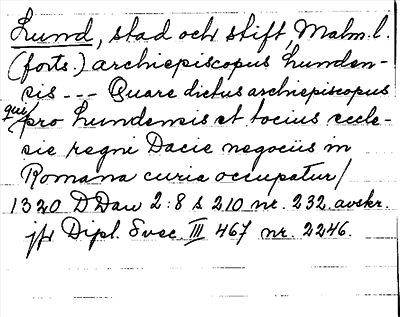 Lund, stad och stift, Malm. l.
(forts.) archiepiscopus Lunden-
sis --- Quare dictus archiepiscopus
qui/pro Lundensis et tocius eccle-
sie regni Dacie negociis in
Romana curia occupatur/
1320 D Dan 2:8 s 210 nr. 232. avskr.
jfr Dipl. Svec. III 467 nr. 2246.